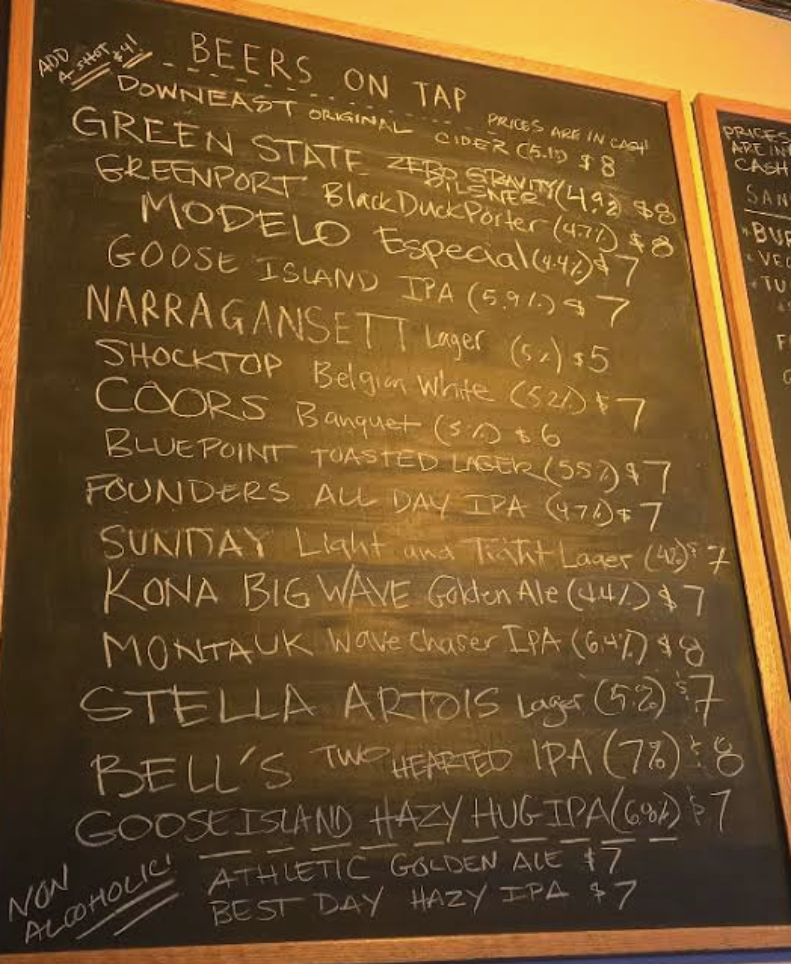 ADD
A SHOT $4!
BEERS ON TAP
PRICES ARE IN CASH!
DOWNEAST ORIGINAL CIDER (5.1%) $8
GREEN STATE ZERO GRAVITY PILSNER (4.9%) $8
GREENPORT Black Duck Porter (4.7%) $8
MODELO Especial (4.4%) $7
GOOSE ISLAND IPA (5.9%) $7
NARRAGANSETT Lager (5%) $5
SHOCKTOP Belgian White (5.2%) $7
COORS Banquet (5%) $6
BLUEPOINT TOASTED LAGER (5.5%) $7
FOUNDERS ALL DAY IPA (4.7%) $7
SUNDAY Light and Tight Lager (4%) $7
KONA BIG WAVE Golden Ale (4.4%) $7
MONTAUK Wave Chaser IPA (6.4%) $8
STELLA ARTOIS Lager (5%) $7
BELL'S TWO HEARTED IPA (7%) $8
GOOSE ISLAND HAZY HUG IPA (6.8%) $7
NON
ALCOHOLIC!
ATHLETIC GOLDEN ALE $7
BEST DAY HAZY IPA $7
PRICES
ARE IN
CASH
SAN
BUR
VEG
TU